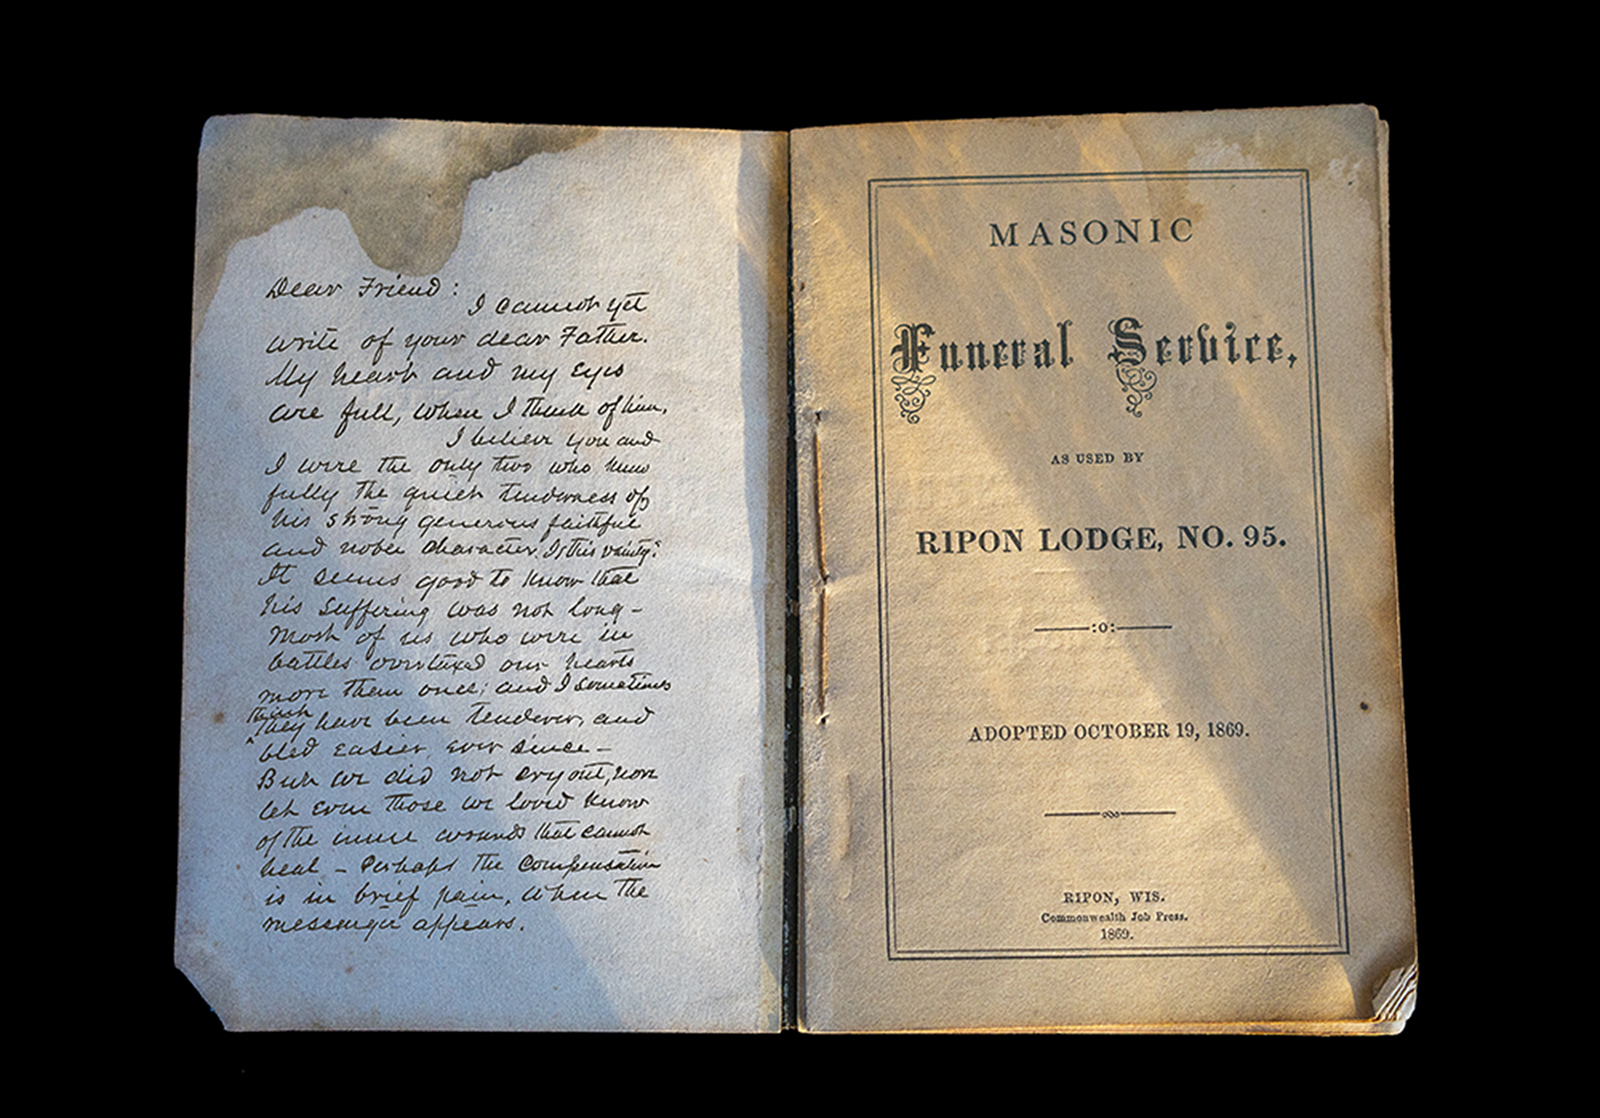 Dear Friend:
I cannot yet
write of your dear Father.
My heart and my Eyes
are full, when I think of him.
I believe you and
I were the only two who knew
fully the quiet tenderness of
his strong generous faithful
and noble character. Is this vanity?
It seems good to know that
his suffering was not long –
Most of us who were in
battles overtaxed our hearts
more than once; and I sometimes
think
they have been tenderer, and
bled easier, ever since –
But we did not cry out, nor
let even those we loved know
of the inner wounds that cannot
heal – Perhaps the compensation
is in brief pain, when the
messenger appears.
MASONIC
Funeral Service,
AS USED BY
RIPON LODGE, NO. 95.
:o:
ADOPTED OCTOBER 19, 1869.
RIPON, WIS.
Commonwealth Job Press.
1869.